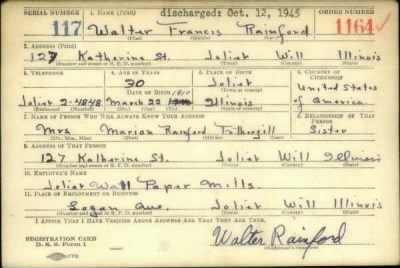 SERIAL NUMBER 1. NAME (Print) discharged: Oct. 12, 1945 ORDER NUMBER
117 Walter Francis Rainford 1164
(First) (Middle) (Last)
2. ADDRESS (Print)
127 Katherine St. Joliet Will Illinois
(Number and street or R. F. D. number) (Town) (County) (State)
3. TELEPHONE 4. AGE IN YEARS 5. PLACE OF BIRTH 6. COUNTRY OF CITIZENSHIP
30 Joliet United States
DATE OF BIRTH (Town or county)
Joliet 2-4848 March 22 1910 Illinois of America
(Exchange) (Number) (Mo.) (Day) (Yr.) (State or country)
7. NAME OF PERSON WHO WILL ALWAYS KNOW YOUR ADDRESS 8. RELATIONSHIP OF THAT PERSON
Mrs. Marion Rainford Fothergill Sister
(Mr., Mrs., Miss) (First) (Middle) (Last)
9. ADDRESS OF THAT PERSON
127 Katherine St. Joliet Will Illinois
(Number and street or R. F. D. number) (Town) (County) (State)
10. EMPLOYER'S NAME
Joliet Wall Paper Mills
11. PLACE OF EMPLOYMENT OR BUSINESS
Logan Ave. Joliet Will Illinois
(Number and street or R. F. D. number) (Town) (County) (State)
I AFFIRM THAT I HAVE VERIFIED ABOVE ANSWERS AND THAT THEY ARE TRUE.
REGISTRATION CARD
D. S. S. Form 1 Walter Rainford
(Registrant's signature)